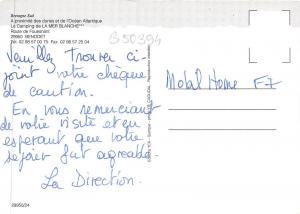 Bénodet Sud
A proximité des dunes et de l'Océan Atlantique
Le Camping de LA MER BLANCHE***
Route de Fouesnant
29950 BENODET
Tél. 02 98 57 00 75 Fax 02 98 57 25 04
G50394
Veuillez trouver ci
joint votre chèque
de caution.
En vous remerciant
de votre visite et en
espérant que votre
séjour fut agréable.
La Direction.
Mobil Home F7
29950/24